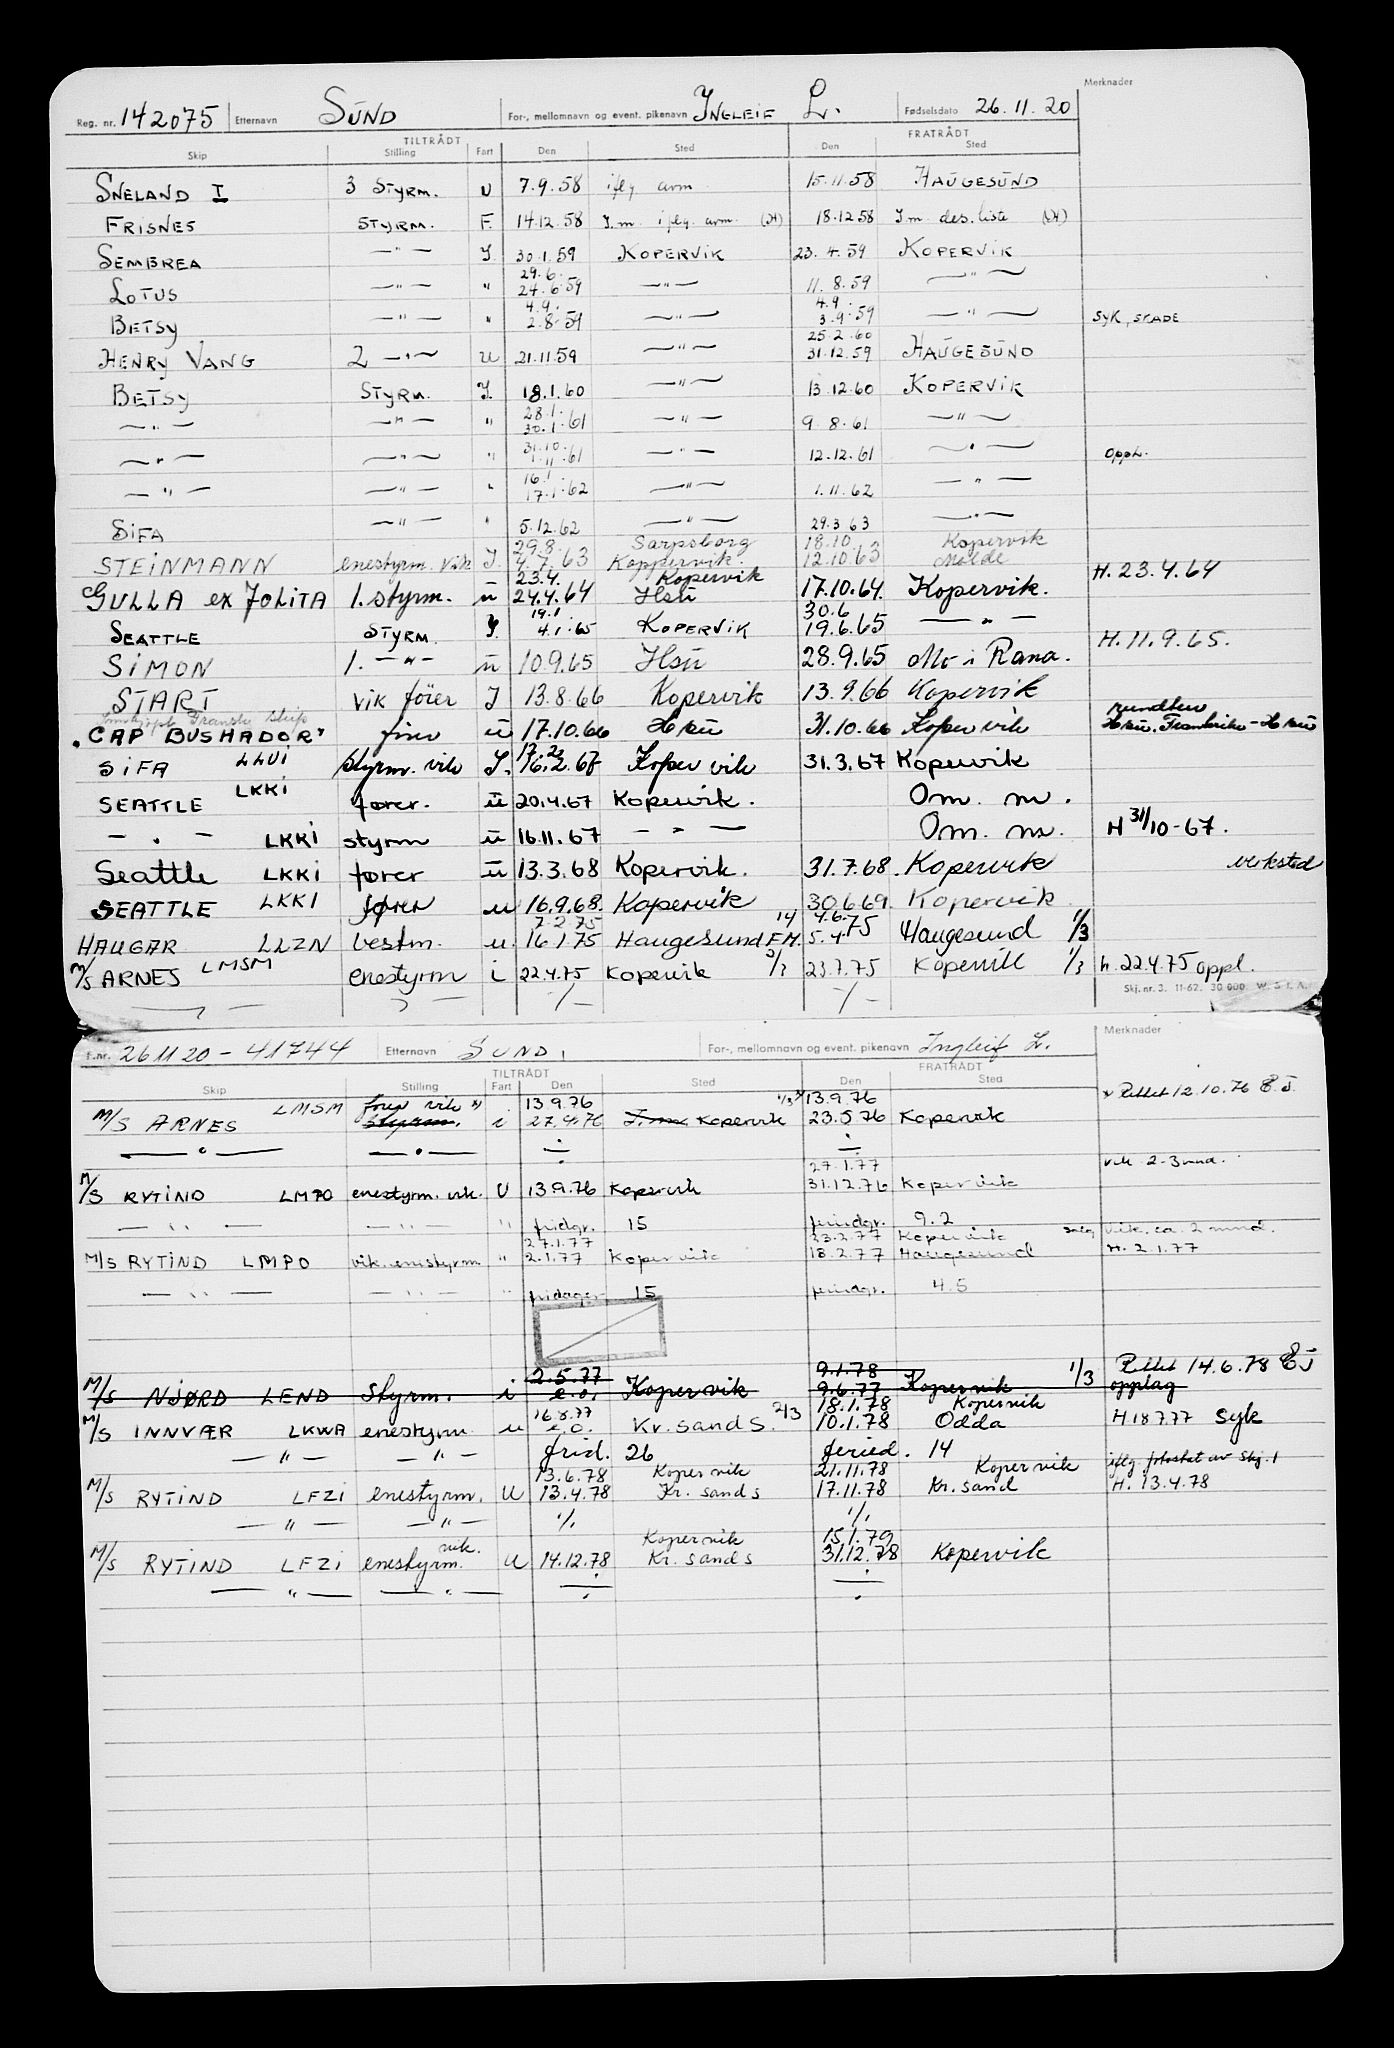 Merknader
Reg. nr. 142075 Etternavn SUND For-, mellomnavn og event. pikenavn INGLEIF L. Fødselsdato 26.11.20
TILTRÅDT FRATRÅDT
Skip Stilling Fart Den Sted Den Sted
SNELAND I 3 STYRM. U 7.9.58 iflg. avm. 15.11.58 HAUGESUND
FRISNES STYRM. F. 14.12.58 I.m. iflg. avm. (H) 18.12.58 I.m. des. liste (H)
SEMBREA —"— I. 30.1.59 KOPERVIK 23.4.59 KOPERVIK
29.6.
LOTUS —"— " 24.6.59 —"— 11.8.59 —"—
4.9. 4.9.
BETSY —"— " 2.8.59 —"— 3.9.59 —"— SYK, SKADE
25.2.60
HENRY VANG 2 —"— u 21.11.59 —"— 31.12.59 HAUGESUND
BETSY STYRM. I. 18.1.60 —"— 13.12.60 KOPERVIK
28.1.
—"— —"— " 30.1.61 —"— 9.8.61 —"—
31.10.
—"— —"— " 1.11.61 —"— 12.12.61 —"— OPPL.
16.1.
—"— —"— " 17.1.62 —"— 1.11.62 —"—
SIFA —"— " 5.12.62 —"— 29.3.63 —"—
29.8. Sarpsborg 18.10 Kopervik
STEINMANN enestyrm. vik I. 4.7.63 Koppervik. 12.10.63 Molde
23.4. Kopervik
GULLA ex JOLITA 1. styrm. u 24.4.64 Hsu 17.10.64 Kopervik. H. 23.4.64
19.1 30.6
SEATTLE STYRM. I. 4.1.65 KOPERVIK 19.6.65 —"—
SIMON 1. —"— u 10.9.65 Hsu 28.9.65 Mo i Rana. H. 11.9.65.
START vik fører I 13.8.66 Kopervik 13.9.66 Kopervik
Innkjøpt Fransk skip
"CAP BUSHADOR" fører u 17.10.66 Hsu 31.10.66 Kopervik
17.2
SIFA LLUI styrm. vik I. 16.2.67 Kopervik 31.3.67 Kopervik
SEATTLE LKKI fører. u 20.4.67 Kopervik. Om. m.
— " — LKKI styrm u 16.11.67 — " — Om. m. H 31/10-67.
Seattle LKKI fører u 13.3.68 Kopervik. 31.7.68 Kopervik verksted
SEATTLE LKKI fører u 16.9.68. Kopervik 30.6.69. Kopervik
7.2.75 14 4.6.75
HAUGAR LLZN bestm. u. 16.1.75 Haugesund F.H. 5.4 Haugesund 1/3
M/S ARNES LMSM enestyrm i 22.4.75 Kopervik 2/3 23.7.75 Kopervik 1/3 h. 22.4.75 oppl.
Skj. nr. 3. 11-62. 30 000. W. S. I. A.
F.nr. 261120-41744 Etternavn SUND, For-, mellomnavn og event. pikenavn Ingleif L. Merknader
TILTRÅDT FRATRÅDT
Skip Stilling Fart Den Sted Den Sted
fører vik x) 13.9.76 13.9.76 x Rettet 12.10.76 E.J.
M/S ARNES LMSM styrm. i 27.4.76 I.m. Kopervik 23.5.76 Kopervik
— " — — " — ÷ ÷
27.1.77 vik 2-3 mnd.
M/S RYTIND LMPO enestyrm. vik. U 13.9.76 Kopervik 31.12.76 Kopervik
— " — — " — " fridgr. 15 feriedgr. 9.2
27.1.77 23.2.77 Kopervik salg Vik. ca. 2 mnd.
M/S RYTIND LMPO vik. enestyrm " 2.1.77 Kopervik 18.2.77 Haugesund H. 2.1.77
— " — — " — " fridager 15 feriedgr. 4.5
2.5.77 9.1.78 Rettet 14.6.78 EJ
M/S NJØRD LEND Styrm. i e.o. Kopervik 9.6.77 Kopervik 1/3 opplag
16.8.77 18.1.78 Kopervik
M/S INNVÆR LKWA enestyrm u e.o. Kr.sand S. 2/3 10.1.78 Odda H.18.7.77 syk
— " — — " — frid. 26 feried. 14
13.6.78 Kopervik 21.11.78 Kopervik
M/S RYTIND LFZI enestyrm. U 13.4.78 Kr. sand S 17.11.78 Kr. sand H. 13.4.78
— " — — " — ·/. ·/.
vik. Kopervik 15.1.79
M/S RYTIND LFZI enestyrm. U 14.12.78 Kr. sand S 31.12.78 Kopervik
— " — — " — ÷ ÷